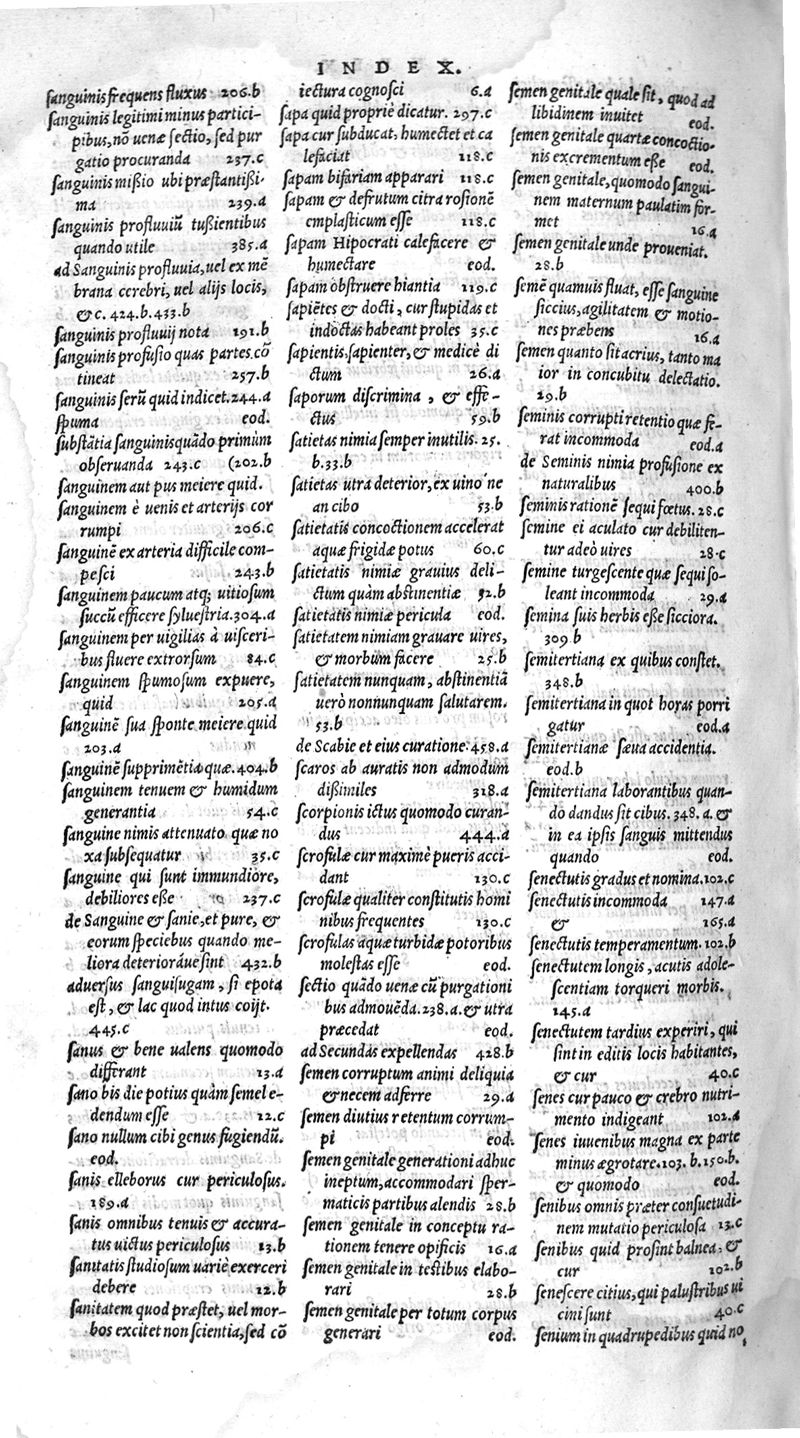 INDEX.
ſanguinis frequens fluxus 206.b
ſanguinis legitimi minus partici-
pibus, nō uenæ ſectio, ſed pur
gatio procuranda 237.c
ſanguinis mißio ubi præstantißi-
ma 239.a
ſanguinis profluuiũ tußientibus
quando utile 385.a
ad Sanguinis profluuia, uel ex mē
brana cerebri, uel alijs locis,
&c. 424.b.433.b
ſanguinis profluuij nota 191.b
ſanguinis profuſio quas partes cō
tineat 257.b
ſanguinis ſerũ quid indicet. 244.a
ſpuma eod.
ſubſtātia ſanguinis quādo primùm
obſeruanda 243.c (202.b
ſanguinem aut pus meiere quid.
ſanguinem è uenis et arterijs cor
rumpi 206.c
ſanguinē ex arteria difficile com-
peſci 243.b
ſanguinem paucum atq; uitioſum
ſuccũ efficere ſylueſtria. 304.a
ſanguinem per uigilias à uiſceri-
bus fluere extrorſum 84.c
ſanguinem ſpumoſum expuere,
quid 205.a
ſanguinē ſua ſponte meiere quid
203.a
ſanguinē ſupprimētia quæ. 404.b
ſanguinem tenuem & humidum
generantia 54.c
ſanguine nimis attenuato quæ no
xa ſubſequatur 35.c
ſanguine qui ſunt immundiore,
debiliores eße 237.c
de Sanguine & ſanie, et pure, &
eorum ſpeciebus quando me-
liora deterioráue ſint 432.b
aduerſus ſanguiſugam, ſi epota
eſt, & lac quod intus coijt.
445.c
ſanus & bene ualens quomodo
differant 13.a
ſano bis die potius quàm ſemel e-
dendum eſſe 12.c
ſano nullum cibi genus fugiendũ.
eod.
ſanis elleborus cur periculoſus.
189.a
ſanis omnibus tenuis & accura-
tus uictus periculoſus 13.b
ſanitatis ſtudioſum uariè exerceri
debere 12.b
ſanitatem quod præſtet, uel mor-
bos excitet non ſcientia, ſed cō
iectura cognoſci 6.a
ſapa quid propriè dicatur. 297.c
ſapa cur ſubducat, humectet et ca
lefaciat 118.c
ſapam bifariam apparari 118.c
ſapam & defrutum citra roſionē
emplaſticum eſſe 118.c
ſapam Hipocrati calefacere &
humectare eod.
ſapam obſtruere hiantia 119.c
ſapiētes & docti, cur ſtupidas et
indoctas habeant proles 35.c
ſapientis, ſapienter, & medicè di
ctum 26.a
ſaporum diſcrimina, & effe-
ctus 59.b
ſatietas nimia ſemper inutilis. 25.
b.33.b
ſatietas utra deterior, ex uino ne
an cibo 53.b
ſatietatis concoctionem accelerat
aquæ frigidæ potus 60.c
ſatietatis nimiæ grauius deli-
ctum quàm abſtinentiæ 52.b
ſatietatis nimiæ pericula eod.
ſatietatem nimiam grauare uires,
& morbum facere 25.b
ſatietatem nunquam, abſtinentiā
uerò nonnunquam ſalutarem.
53.b
de Scabie et eius curatione 458.a
ſcaros ab auratis non admodum
dißimiles 318.a
ſcorpionis ictus quomodo curan-
dus 444.a
ſcrofulæ cur maximè pueris acci-
dant 130.c
ſcrofulæ qualiter conſtitutis homi
nibus frequentes 130.c
ſcrofulas aquæ turbidæ potoribus
moleſtas eſſe eod.
ſectio quādo uenæ cũ purgationi
bus admouēda. 238.a. & utra
præcedat eod.
ad Secundas expellendas 428.b
ſemen corruptum animi deliquia
& necem adferre 29.a
ſemen diutius retentum corrum-
pi eod.
ſemen genitale generationi adhuc
ineptum, accommodari ſper-
maticis partibus alendis 28.b
ſemen genitale in conceptu ra-
tionem tenere opificis 16.a
ſemen genitale in teſtibus elabo-
rari 28.b
ſemen genitale per totum corpus
generari eod.
ſemen genitale quale ſit, quod ad
libidinem inuitet eod.
ſemen genitale quartæ concoctio-
nis excrementum eſſe eod.
ſemen genitale, quomodo ſangui-
nem maternum paulatim for-
met 16.a
ſemen genitale unde proueniat.
28.b
ſemē quamuis fluat, eſſe ſanguine
ſiccius, agilitatem & motio-
nes præbens 16.a
ſemen quanto ſit acrius, tanto ma
ior in concubitu delectatio.
29.b
ſeminis corrupti retentio quæ fe-
rat incommoda eod.a
de Seminis nimia profuſione ex
naturalibus 400.b
ſeminis rationē ſequi fœtus. 28.c
ſemine eiaculato cur debiliten-
tur adeò uires 28.c
ſemine turgeſcente quæ ſequi ſo-
leant incommoda 29.a
ſemina ſuis herbis eße ſicciora.
309.b
ſemitertiana ex quibus conſtet.
348.b
ſemitertiana in quot horas porri
gatur eod.a
ſemitertianæ ſæua accidentia.
eod.b
ſemitertiana laborantibus quan-
do dandus ſit cibus. 348.a. &
in ea ipſis ſanguis mittendus
quando eod.
ſenectutis gradus et nomina. 102.c
ſenectutis incommoda 147.a
& 165.a
ſenectutis temperamentum. 102.b
ſenectutem longis, acutis adole-
ſcentiam torqueri morbis.
145.a
ſenectutem tardius experiri, qui
ſint in editis locis habitantes,
& cur 40.c
ſenes cur pauco & crebro nutri-
mento indigeant 102.a
ſenes iuuenibus magna ex parte
minus ægrotare. 103.b.150.b.
& quomodo eod.
ſenibus omnis præter conſuetudi-
nem mutatio periculoſa 13.c
ſenibus quid proſint balnea, &
cur 102.b
ſeneſcere citius, qui paluſtribus ui
cini ſunt 40.c
ſenium in quadrupedibus quid no,